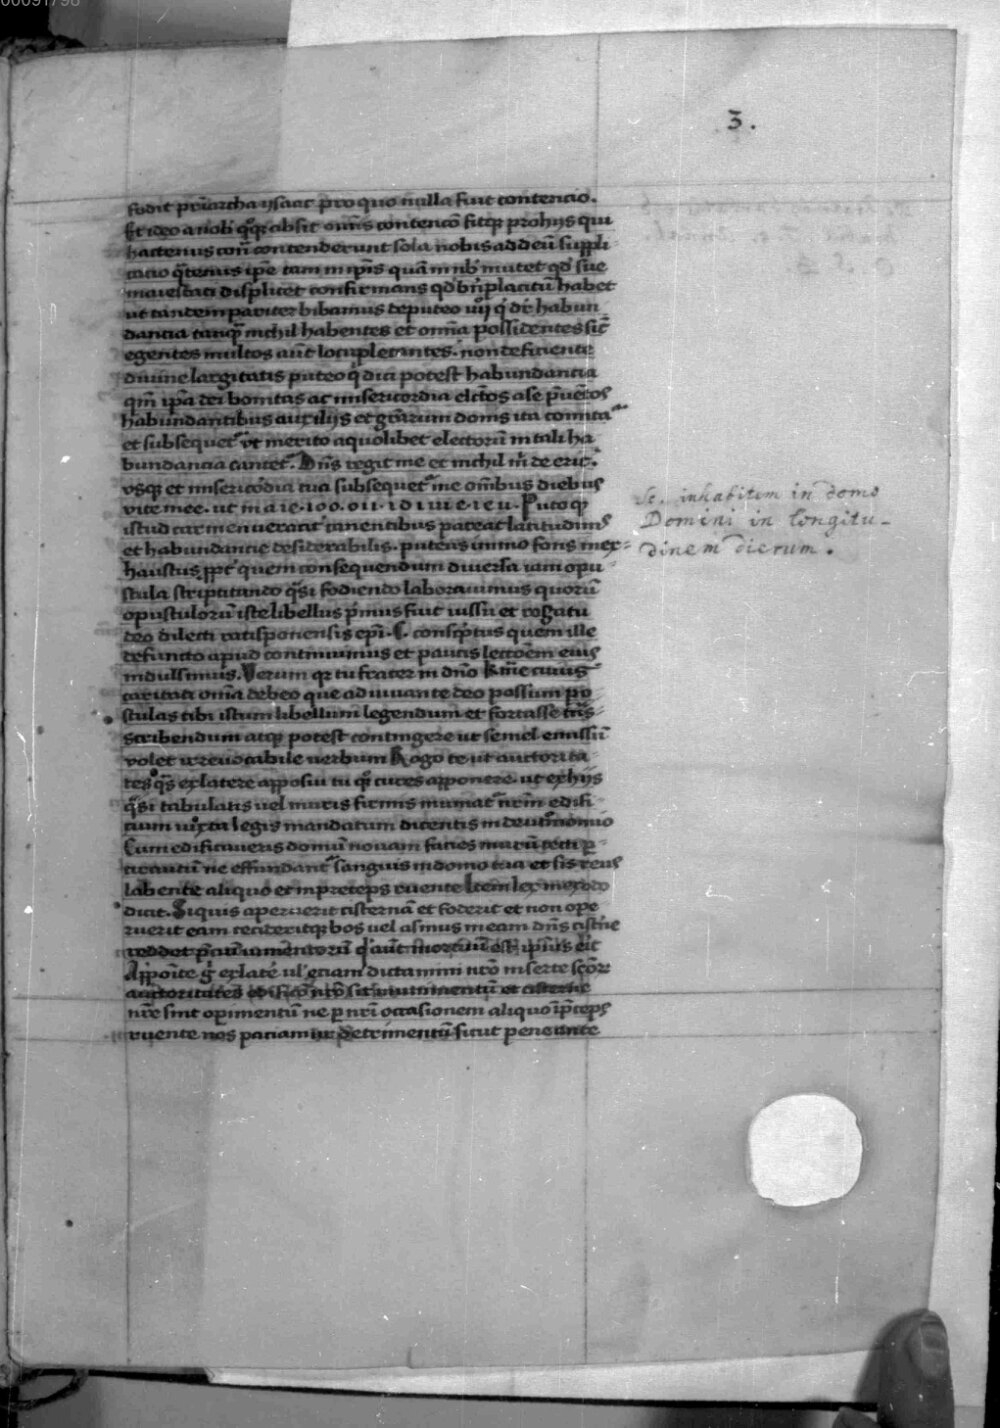 00091796
3.
fodit p̄riarcha ysaac pro quo nulla fuit contencio.
Et ideo a nob̄ q̊q absit om̄is contenc̄o fitq̢ pro hijs qui
hactenus cont̄ contenderunt sola nobis ad deū suppli-
catio q̄tenus ip̄e tam in ip̄is quā in nb̄ mutet qd̄ sue
maiestati displicet confirmans qd̄ bn̄placitū habet
ut tandem pariter bibamus de puteo uiuo q̇ dr̄ habun
dancia tanq̄ nichil habentes et om̄ia possidentes sic̄
egentes multos aūt locupletantes. non deficiente
diuine largitatis puteo q̇ dici potest habundantia
qm̄ ip̄a dei bonitas ac misericordia elc̄tos a se p̄uētos
habundantibus auxilijs et gr̄arum donis ita comitat̄
et subsequet̄ ut merito a quolibet electorū in tali ha
bundancia cantet̄. Dn̄s regit me et nichil m̄ deerit.
usq̢ et misericōdia tua subsequet̄ me om̄ibus diebus
vite mee. ut
Puto q̢
istud carmen ueracit̄ canentibus pateat latitudinis
et habundancie desiderabilis. puteus immo fons inex-
haustus ꝓpt̄ quem consequendum diuersa iam opu-
scula scriptitando q̄si fodiendo laborauimus quorū
opusculorū iste libellus p̄mus fuit iussu et rogatu
deo dilecti ratisponensis ep̄i. C. consc̄ptus quem ille
defuncto apud continuimus et paucis lecc̄oem eius
indulsimus. Verum qr̄ tu frater in dn̄o kn̄ie cuius
caritati om̄ia debeo que adiuuante deo possum po
stulas tibi istum libellum legendum et fortasse tn̄s-
scribendum atq̢ potest contingere ut semel emissū
volet irreuocabile uerbum Rogo te ut auctorita
tes q̊s ex latere apposui tu q̊q̢ cures apponere. ut ex hijs
q̄si tabulatis uel muris firmis muniat̄ nr̄m edifi-
cium iuxta legis mandatum dicentis in deutronomio
Cum edificaueris domū nouam facies murū tecti p-
circuitū ne effundat̄ sanguis in domo tua et sis reus
labente aliquo et in preceps ruente Item lex in exodo
dicit. Siquis aperuerit cisternā et foderit et non ope-
ruerit eam cecideritq̢ bos uel asinus in eam dn̄s cist̄ne
reddet p̄ciū iumentorū q̇ aūt mortuū est ip̄ius erit
Appone g̊ ex late ul̄ etiam dictamini nr̄o inserte scōr̄
auctoritates edificio nr̄o sit munimentū et cisterne
nr̄e sint operimentū ne p nr̄i occasionem aliquo ī p̄ceps
ruente nos paciamur detrimentū sicut pene ante
Sc. inhabitem in domo
Domini in longitu-
dinem dierum.